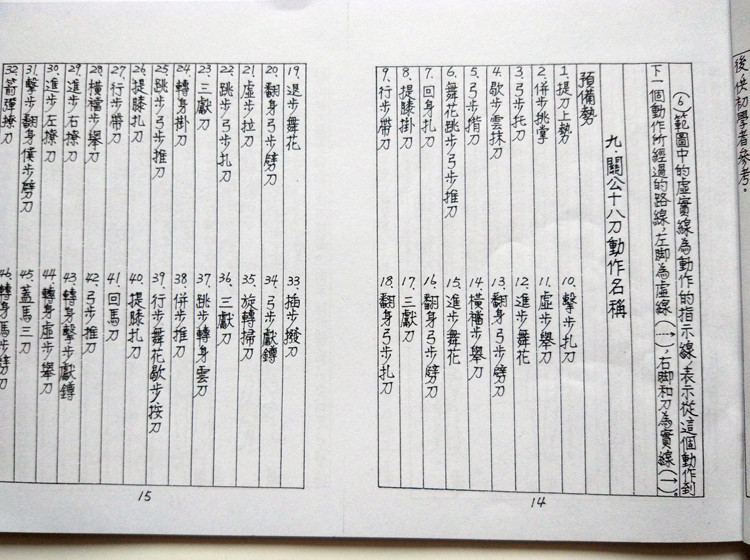 後供初學者參考。
(6)範圖中的虛實線為動作的指示線,表示從這個動作到
下一個動作所經過的路線,左脚為虛線(⇢),右脚和刀為實線(→)。
九.關公十八刀動作名稱
預備勢
1.提刀上勢
2.併步挑掌
3.弓步托刀
4.歇步雲抹刀
5.弓步揹刀
6.舞花跳步弓步推刀
7.回身扎刀
8.提膝掛刀
9.行步帶刀
10.擊步扎刀
11.虛步舉刀
12.進步舞花
13.翻身弓步劈刀
14.橫襠步舉刀
15.進步舞花
16.翻身弓步劈刀
17.三獻刀
18.翻身弓步扎刀
14
19.退步舞花
20.翻身弓步劈刀
21.虛步拉刀
22.跳步弓步扎刀
23.三獻刀
24.轉身掛刀
25.跳步弓步推刀
26.提膝扎刀
27.行步帶刀
28.橫襠步舉刀
29.進步右撩刀
30.進步左撩刀
31.擊步翻身僕步劈刀
32.箭彈撩刀
33.插步撥刀
34.弓步獻鐏
35.旋轉掃刀
36.三獻刀
37.跳步轉身雲刀
38.併步推刀
39.行步舞花歇步按刀
40.提膝扎刀
41.回馬刀
42.弓步推刀
43.轉身擊步獻鐏
44.轉身虛步舉刀
45.蓋馬三刀
46.轉身馬步劈刀
15